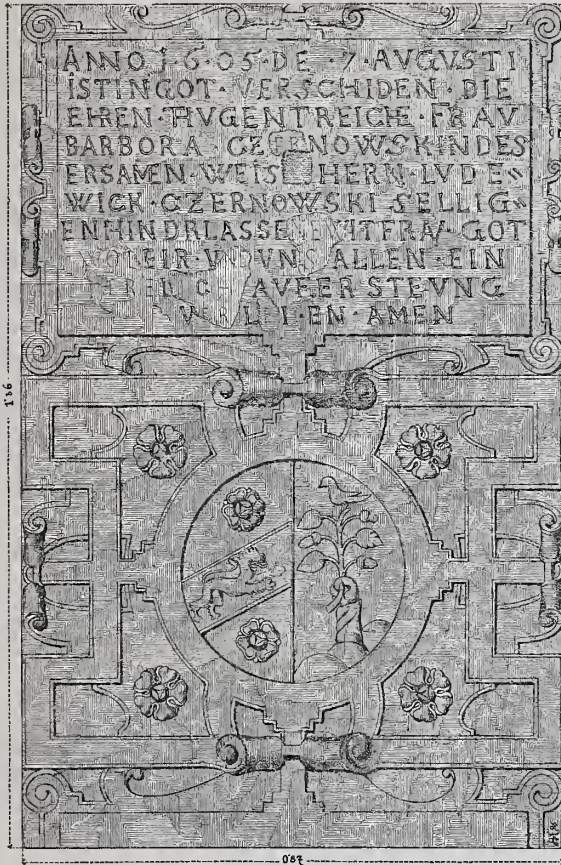 ANNO 1·6·05·DE·7·AVGVSTI
ISTINGOT·VERSCHIDEN·DIE
EHREN·TVGENTREICHE·FRAV
BARBORA CZERNOWSKINDES
ERSAMEN·WEIS HERN·LVDE=
WICK·CZERNOWSKI·SELLIG=
ENHINDRLASSE GOT
VNS ALLEN·EIN
AVFERSTEVNG
AMEN
1·86
0·87